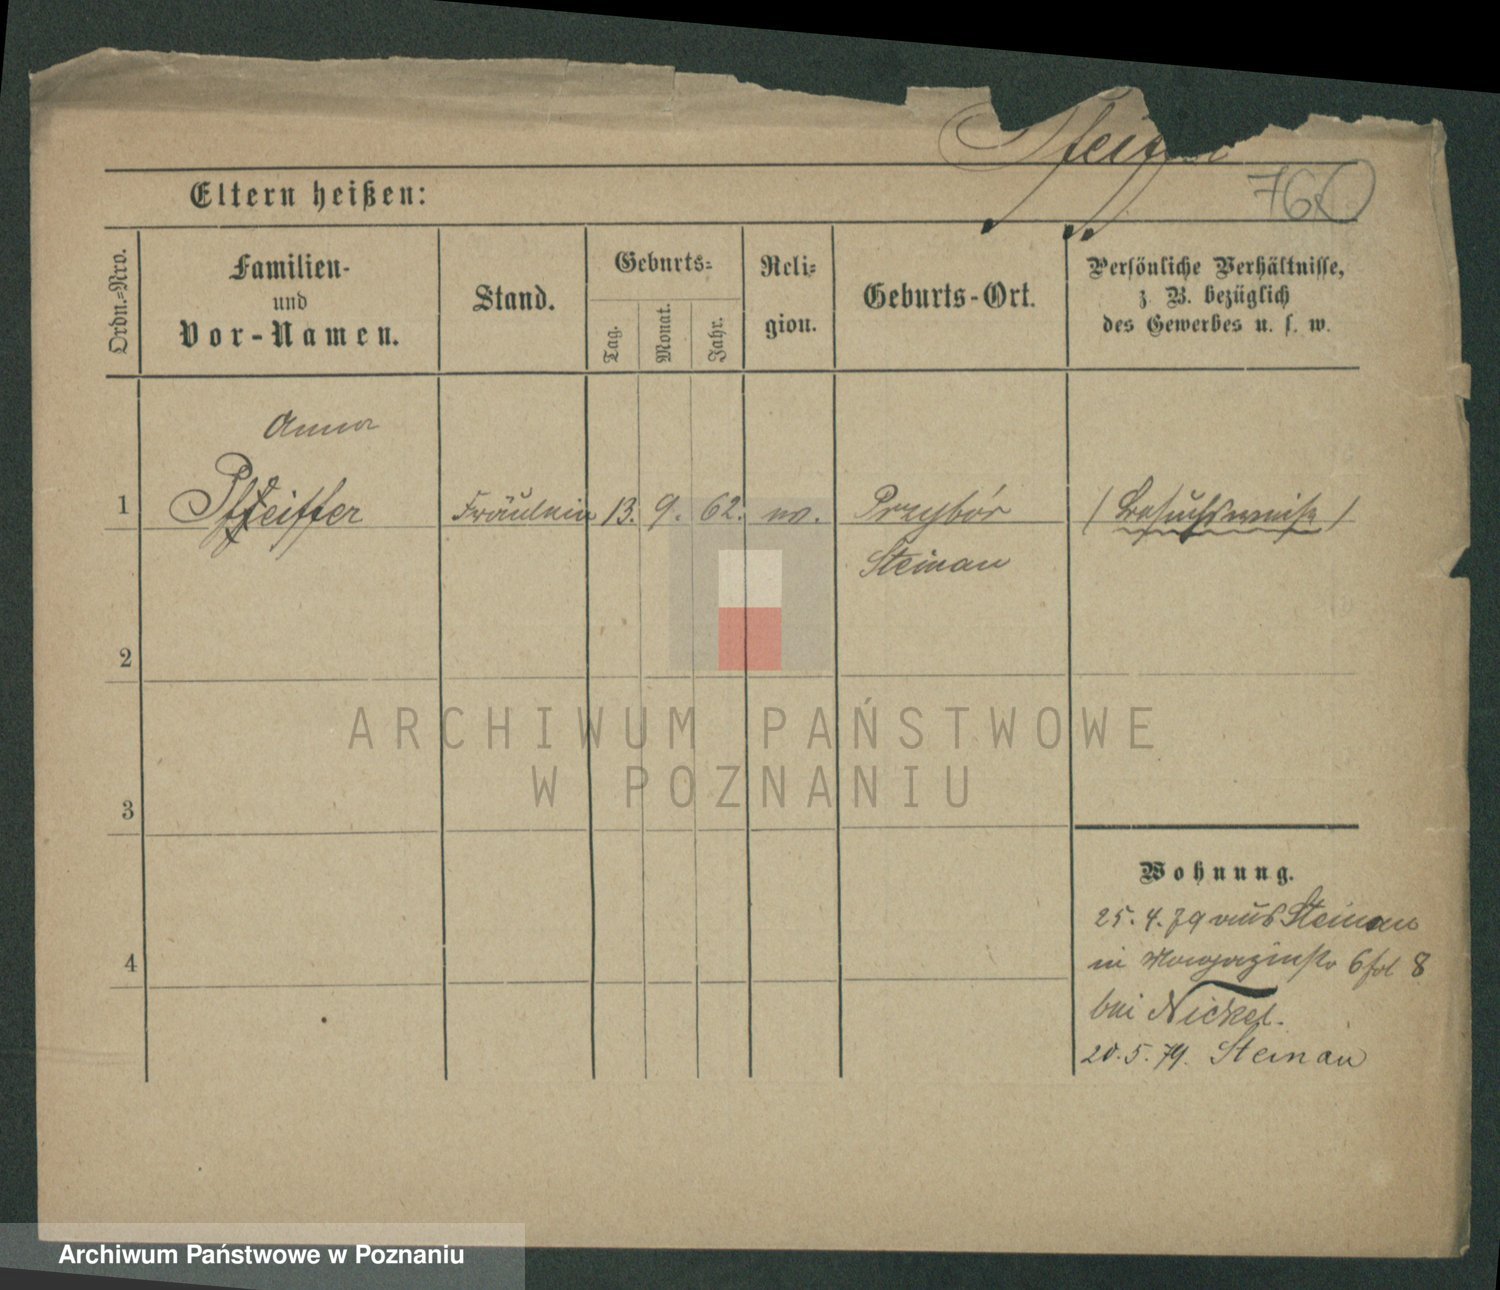 Pfeiffer
Eltern heißen:
760
Ordn.-Nro.
Familien-
und
Vor-Namen.
Stand.
Geburts-
Tag.
Monat.
Jahr.
Reli-
gion.
Geburts-Ort.
Persönliche Verhältnisse,
z. B. bezüglich
des Gewerbes u. s. w.
Anna
1 Pfeiffer Fräulein 13. 9. 62. ev. Przybór (Besuchsweise)
Steinau
2
3
4
ARCHIWUM PAŃSTWOWE
W POZNANIU
Wohnung.
25. 4. 79 aus Steinau
in Magazinstr 6 8
bei Nickel.
20. 5. 79. Steinau
Archiwum Państwowe w Poznaniu